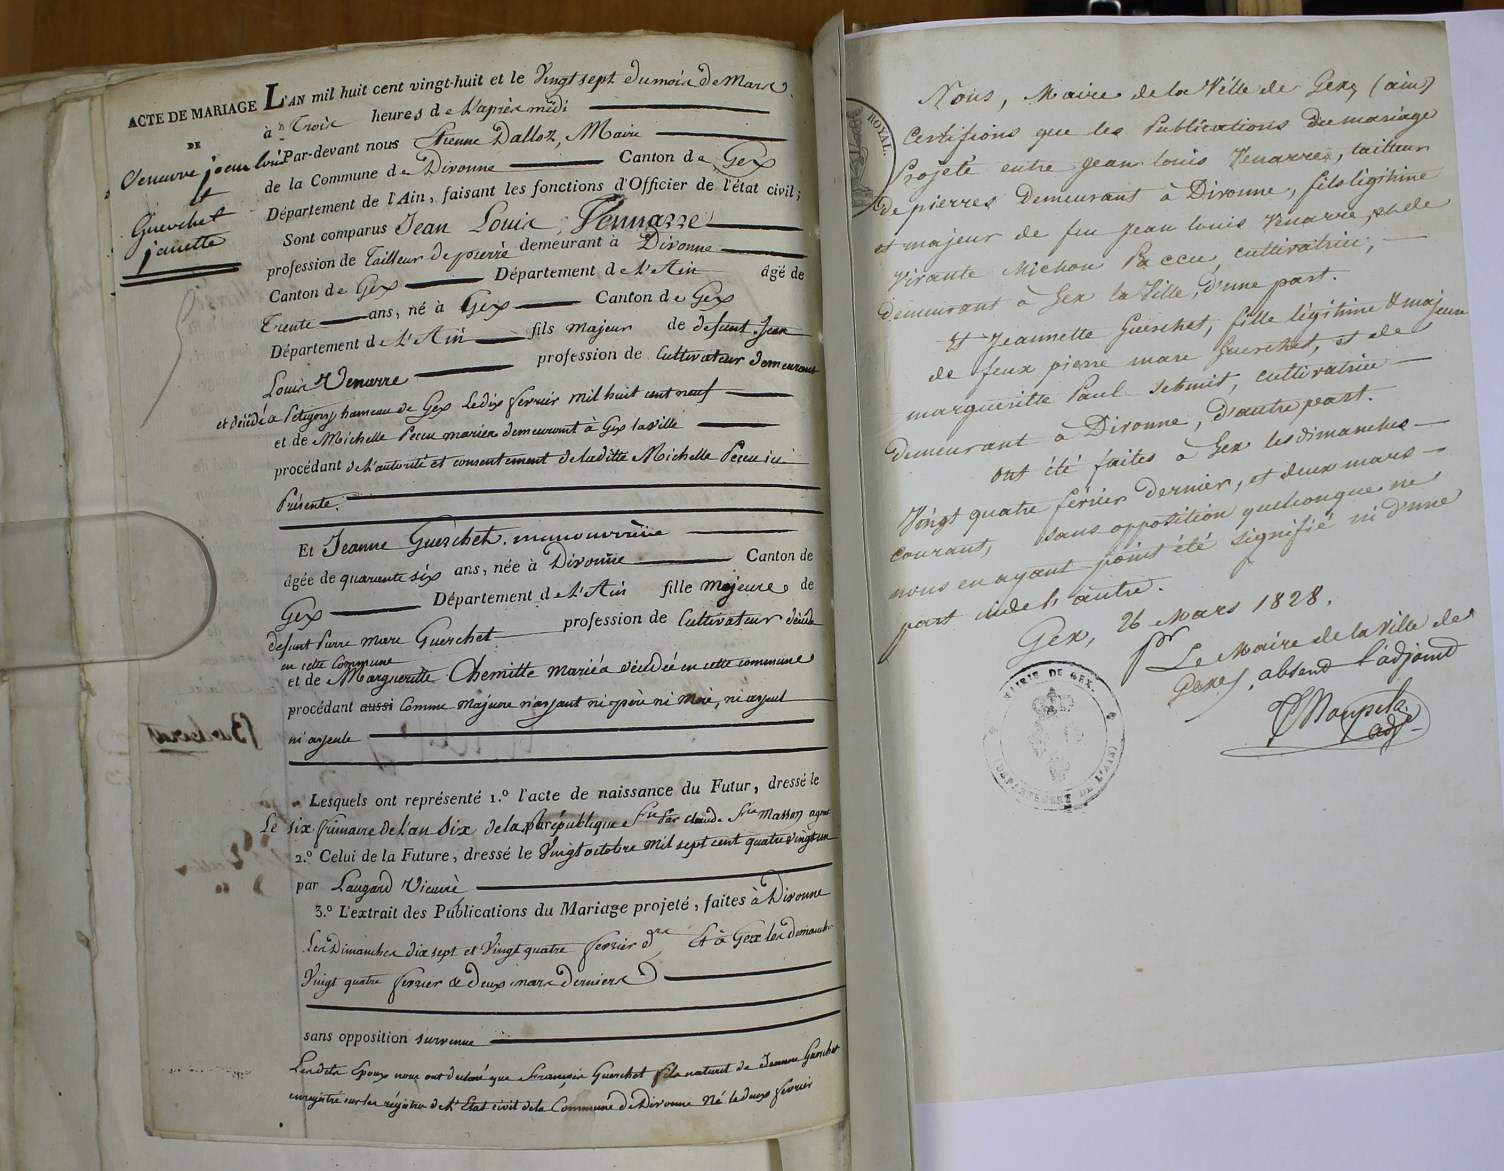 ACTE DE MARIAGE
DE
Venarre jean louis
et
Guerchet
janette
L'AN mil huit cent vingt-huit et le Vingt sept du mois de Mars
à Trois heures de L'après midi
Par-devant nous Etienne Dalloz, Maire
de la Commune de Divonne Canton de Gex
Département de l'Ain, faisant les fonctions d'Officier de l'état civil;
Sont comparus Jean Louis Vennarre
profession de Tailleur de pierre demeurant à Divonne
Canton de Gex Département de L'Ain âgé de
Trente ans, né à Gex Canton de Gex
Département de L'Ain fils majeur de defunt Jean
Louis Venarre profession de Cultivateur demeurant
et décédé à hameau de Gex Le dix fevrier mil huit cent neuf
et de Michelle Peccu mariée demeurant à Gex la ville
procédant de L'autorité et consentement de la ditte Michelle Peccu ici
Présente.
Et Jeanne Guerchet manouvrière
âgée de quarante six ans, née à Divonne Canton de
Gex Département de L'Ain fille majeure de
defunt Pierre marc Guerchet profession de Cultivateur décédé
en cette Commune
et de Margueritte Chemitte mariée décédée en cette commune
procédant aussi Comme Majeure n'ayant ni père ni Mère, ni ayeul
ni ayeule
Lesquels ont représenté 1.º l'acte de naissance du Futur, dressé le
Le six frimaire de l'an Six de la république par claude Masson agent
2.º Celui de la Future, dressé le Vingt octobre Mil sept cent quatre vingt un
par Laugard Vicaire
3.º L'extrait des Publications du Mariage projeté, faites à Divonne
Les Dimanches dix sept et Vingt quatre fevrier Et à Gex les dimanches
Vingt quatre fevrier & deux mars derniers
sans opposition survenue
Les dits Epoux nous ont declaré que François Guerchet fils naturel de Jeanne Guerchet
enregistré sur les régistres de L'Etat civil de la Commune de Divonne Né le deux fevrier
ROYAL.
Nous, Maire de la Ville de Gex, (ain)
Certifions que les Publications du mariage
Projeté entre Jean Louis Venarre, tailleur
de pierres demeurant à Divonne, fils légitime
et majeur de feu Jean Louis Venarre, et de
Vivante Michon Peccu, cultivatrice,
demeurant à Gex la Ville, d'une part.
Et Jeannette Guerchet, fille légitime & majeure
de feux pierre marc Guerchet, et de
margueritte Paul Schmit, cultivatrice
demeurant à Divonne, d'autre part.
ont été faites à Gex les dimanches
Vingt quatre février dernier, et deux mars
courant, sans opposition quelconque ne
nous en ayant point été signifié ni d'une
part ni de l'autre.
Gex, 26 Mars 1828.
pr Le Maire de la Ville de
Gex, absend l'adjoint
adj
MAIRIE DE GEX.
DÉPARTEMENT DE L'AIN